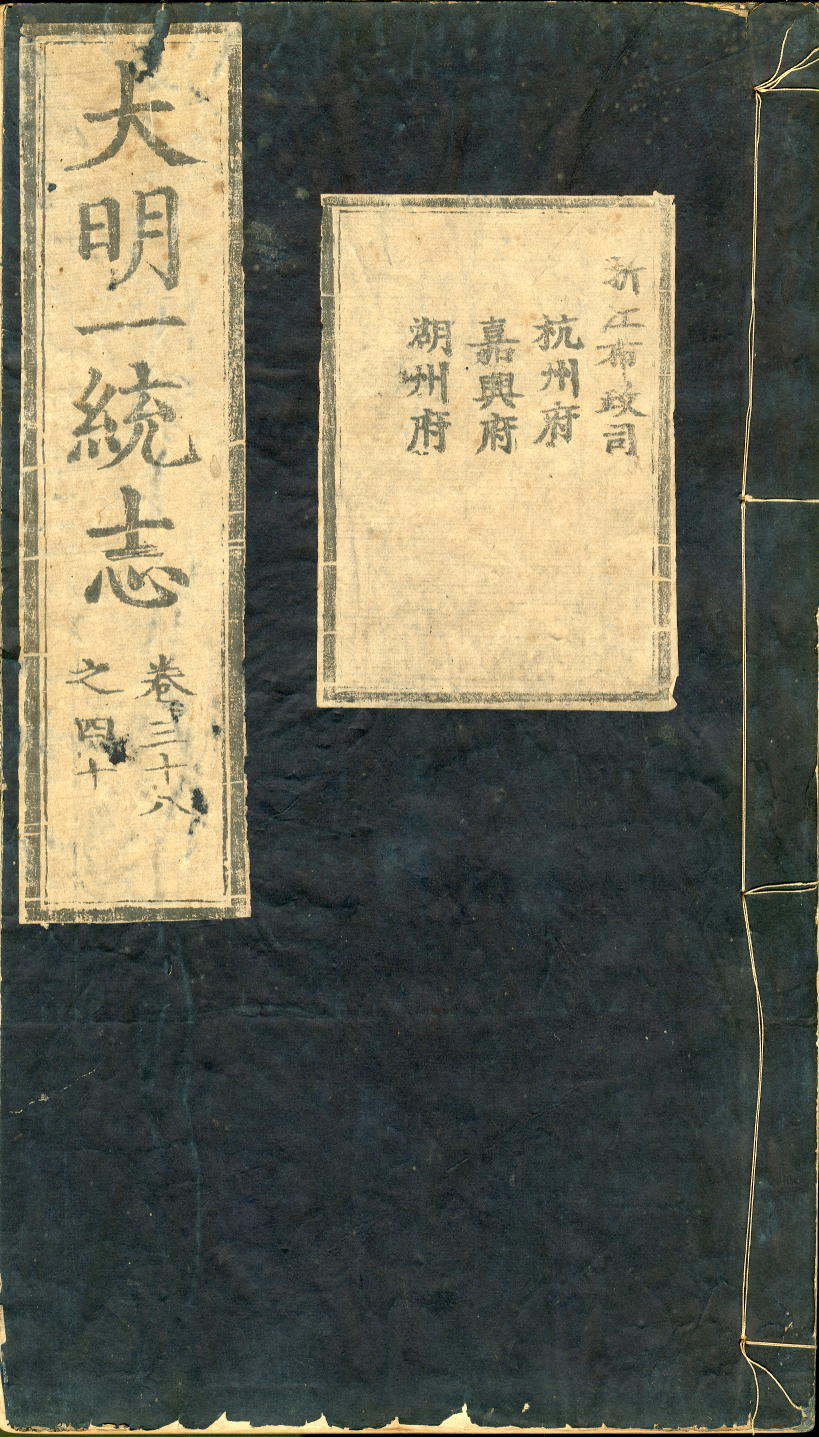 浙江布政司
杭州府
嘉興府
湖州府
大明一統志
卷三十八
之四十